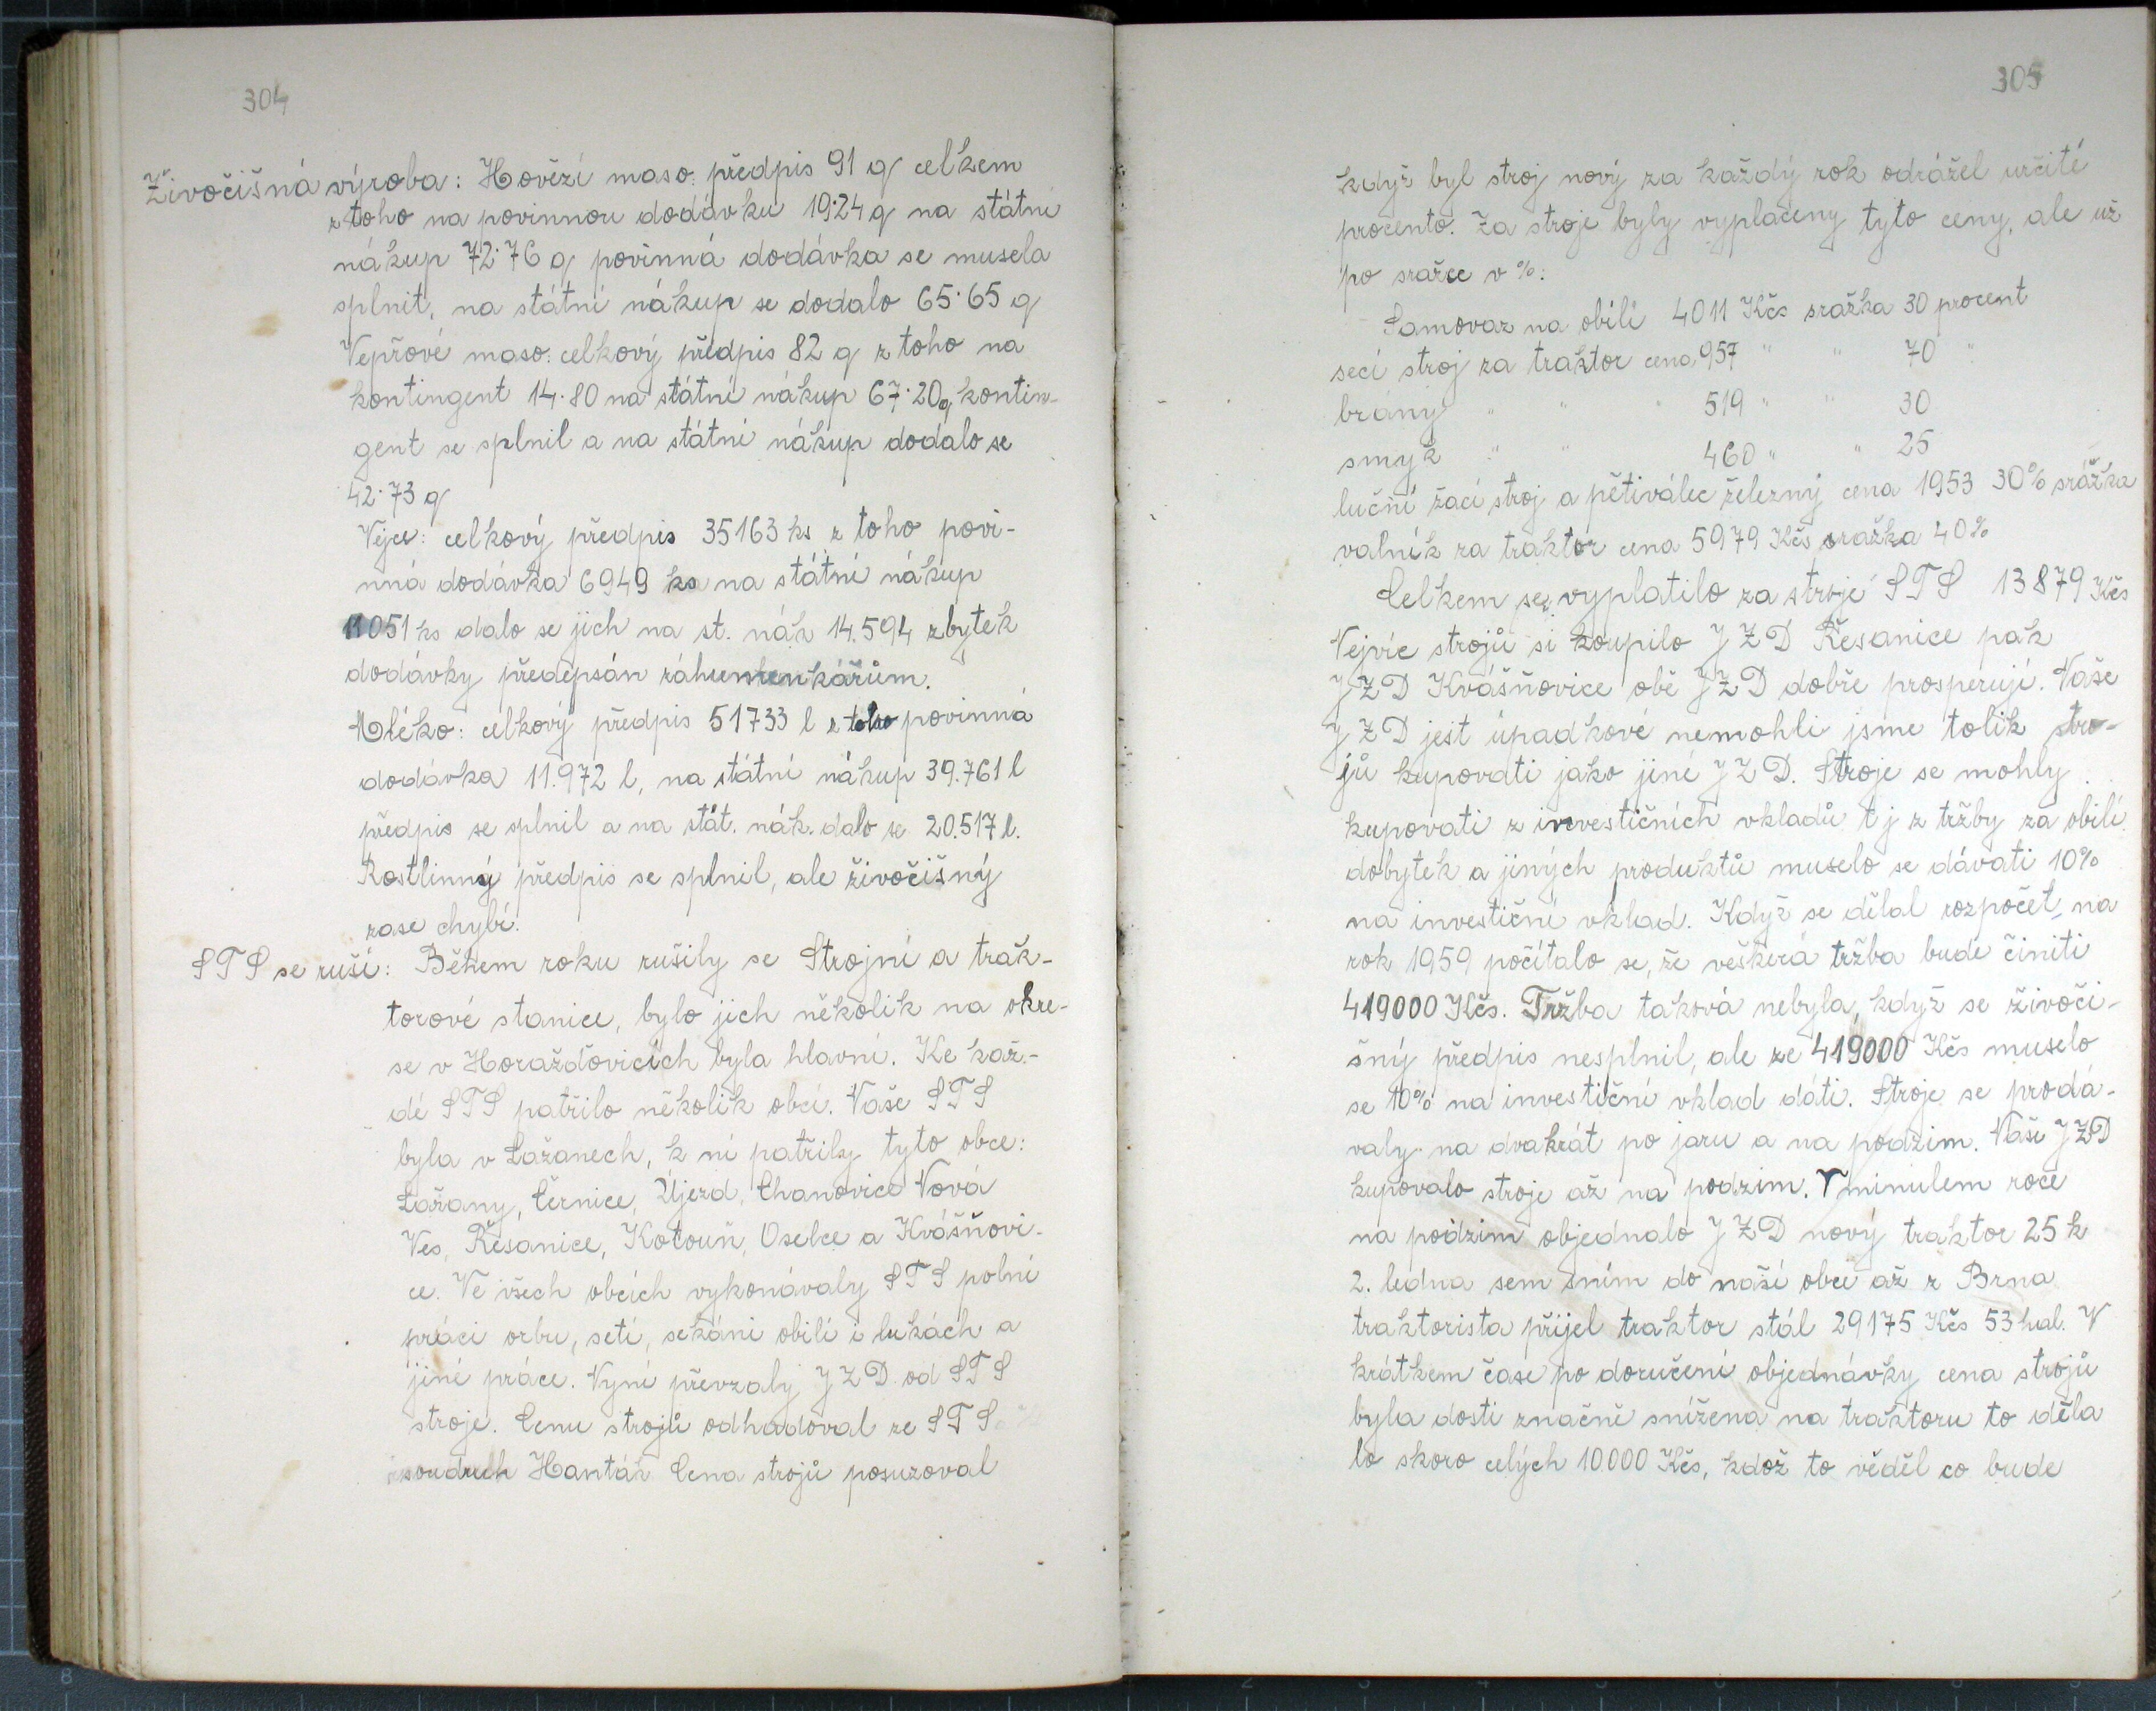 304
Živočišná výroba: Hovězí maso: předpis 91 q celkem
z toho na povinnou dodávku 19·24 q na státní
nákup 72·76 q povinná dodávka se musela
splnit, na státní nákup se dodalo 65·65 q
Vepřové maso: celkový předpis 82 q z toho na
kontingent 14·80 na státní nákup 67·20q kontin-
gent se splnil a na státní nákup dodalo se
42·73 q
Vejce: celkový předpis 35163 ks z toho povi-
nná dodávka 6949 ks na státní nákup
11051 ks dalo se jich na st. nák 14.594 zbytek
dodávky předepsán záhumenkářům.
Mléko: celkový předpis 51733 l z toho povinná
dodávka 11.972 l, na státní nákup 39.761 l
předpis se splnil a na stát. nák. dalo se 20.517 l.
Rostlinný předpis se splnil, ale živočišný
zase chybí.
STS se ruší: Během roku rušily se Strojní a trak-
torové stanice, bylo jich několik na okre-
se v Horažďovicích byla hlavní. Ke kaž-
dé STS patřilo několik obcí. Naše STS
byla v Lažanech, k ní patřily tyto obce:
Lažany, Černice, Újezd, Chanovice Nová
Ves, Řesanice, Kotouň, Oselce a Kvášňovi-
ce. Ve všech obcích vykonávaly STS polní
práci orbu, setí, sekání obilí i lukách a
jiné práce. Nyní převzaly JZD od STS
stroje. Cenu strojů odhadoval ze STS
soudruh Hanták Cena strojů posuzoval
305
když byl stroj nový za každý rok odrážel určité
procento. Za stroje byly vyplaceny tyto ceny, ale už
po sražce v %:
Samovaz na obilí 4011 Kčs sražka 30 procent
secí stroj za traktor cena 957 " " 70 "
brány " " " 519 " " 30
smyk " " 460 " " 25
luční žací stroj a pětiválec železný cena 1953 30% srážka
valník za traktor cena 5979 Kčs sražka 40%
Celkem se vyplatilo za stroje STS 13879 Kčs
Nejvíc strojů si koupilo JZD Řesanice pak
JZD Kvášňovice obě JZD dobře prosperují. Naše
JZD jest úpadkové nemohli jsme tolik stro-
jů kupovati jako jiné JZD. Stroje se mohly
kupovati z investičních vkladů t j z tržby za obilí
dobytek a jiných produktů muselo se dávati 10%
na investiční vklad. Když se dělal rozpočet na
rok 1959 počítalo se, že veškerá tržba bude činiti
419000 Kčs. Tržba taková nebyla, když se živoči-
šný předpis nesplnil, ale ze 419000 Kčs muselo
se 10% na investiční vklad dáti. Stroje se prodá-
valy na dvakrát po jaru a na podzim. Naše JZD
kupovalo stroje až na podzim. V minulem roce
na podzim objednalo JZD nový traktor 25 k
2. ledna sem sním do naší obce až z Brna
traktorista přijel traktor stál 29175 Kčs 53 hal. V
krátkem čase po doručení objednávky cena strojů
byla dosti značně snížena na traktoru to děla
lo skoro celých 10.000 Kčs, kdož to věděl co bude